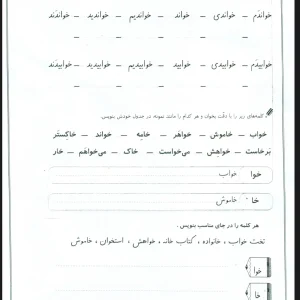 خواندم – خواندی – خواند – خواندیم – خواندید – خواندند
– – – – – –
خوابیدم – خوابیدی – خوابید – خوابیدیم – خوابیدید – خوابیدند
– – – – – –
کلمه‌های زیر را با دقّت بخوان و هر کدام را مانند نمونه در جدول خودش بنویس.
خواب – خاموش – خواهر – خامه – خواند – خاکِستر
بَرخاست – خواهِش – می‌خواست – خاک – می‌خواهَم – خار
خوا خواب
خا خاموش
هر کلمه را در جای مناسب بنویس.
تخت خواب ، خانواده ، کتاب خانه ، خواهش ، استخوان ، خاموش
خوا
خا